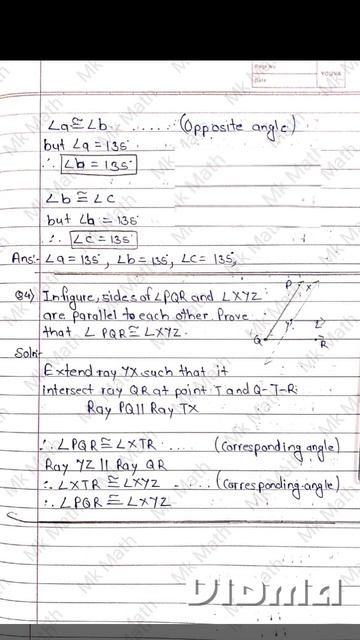 Page No.
Date
YOUVA
∠a ≅ ∠b ...... (Opposite angle)
but ∠a = 135°
∴ ∠b = 135°
∠b ≅ ∠c
but ∠b = 135°
∴ ∠c = 135°
Ans:- ∠a = 135°, ∠b = 135°, ∠c = 135°,
Q4) In figure, sides of ∠PQR and ∠XYZ
are parallel to each other. Prove
that ∠PQR ≅ ∠XYZ.
P X
Y Z
Q R
Soln:-
Extend ray YX such that it
intersect ray QR at point T and Q-T-R.
Ray PQ || Ray TX
∴ ∠PQR ≅ ∠XTR .... (corresponding angle)
Ray YZ || Ray QR
∴ ∠XTR ≅ ∠XYZ ..... (corresponding angle)
∴ ∠PQR ≅ ∠XYZ
Mk Math
VIDMA